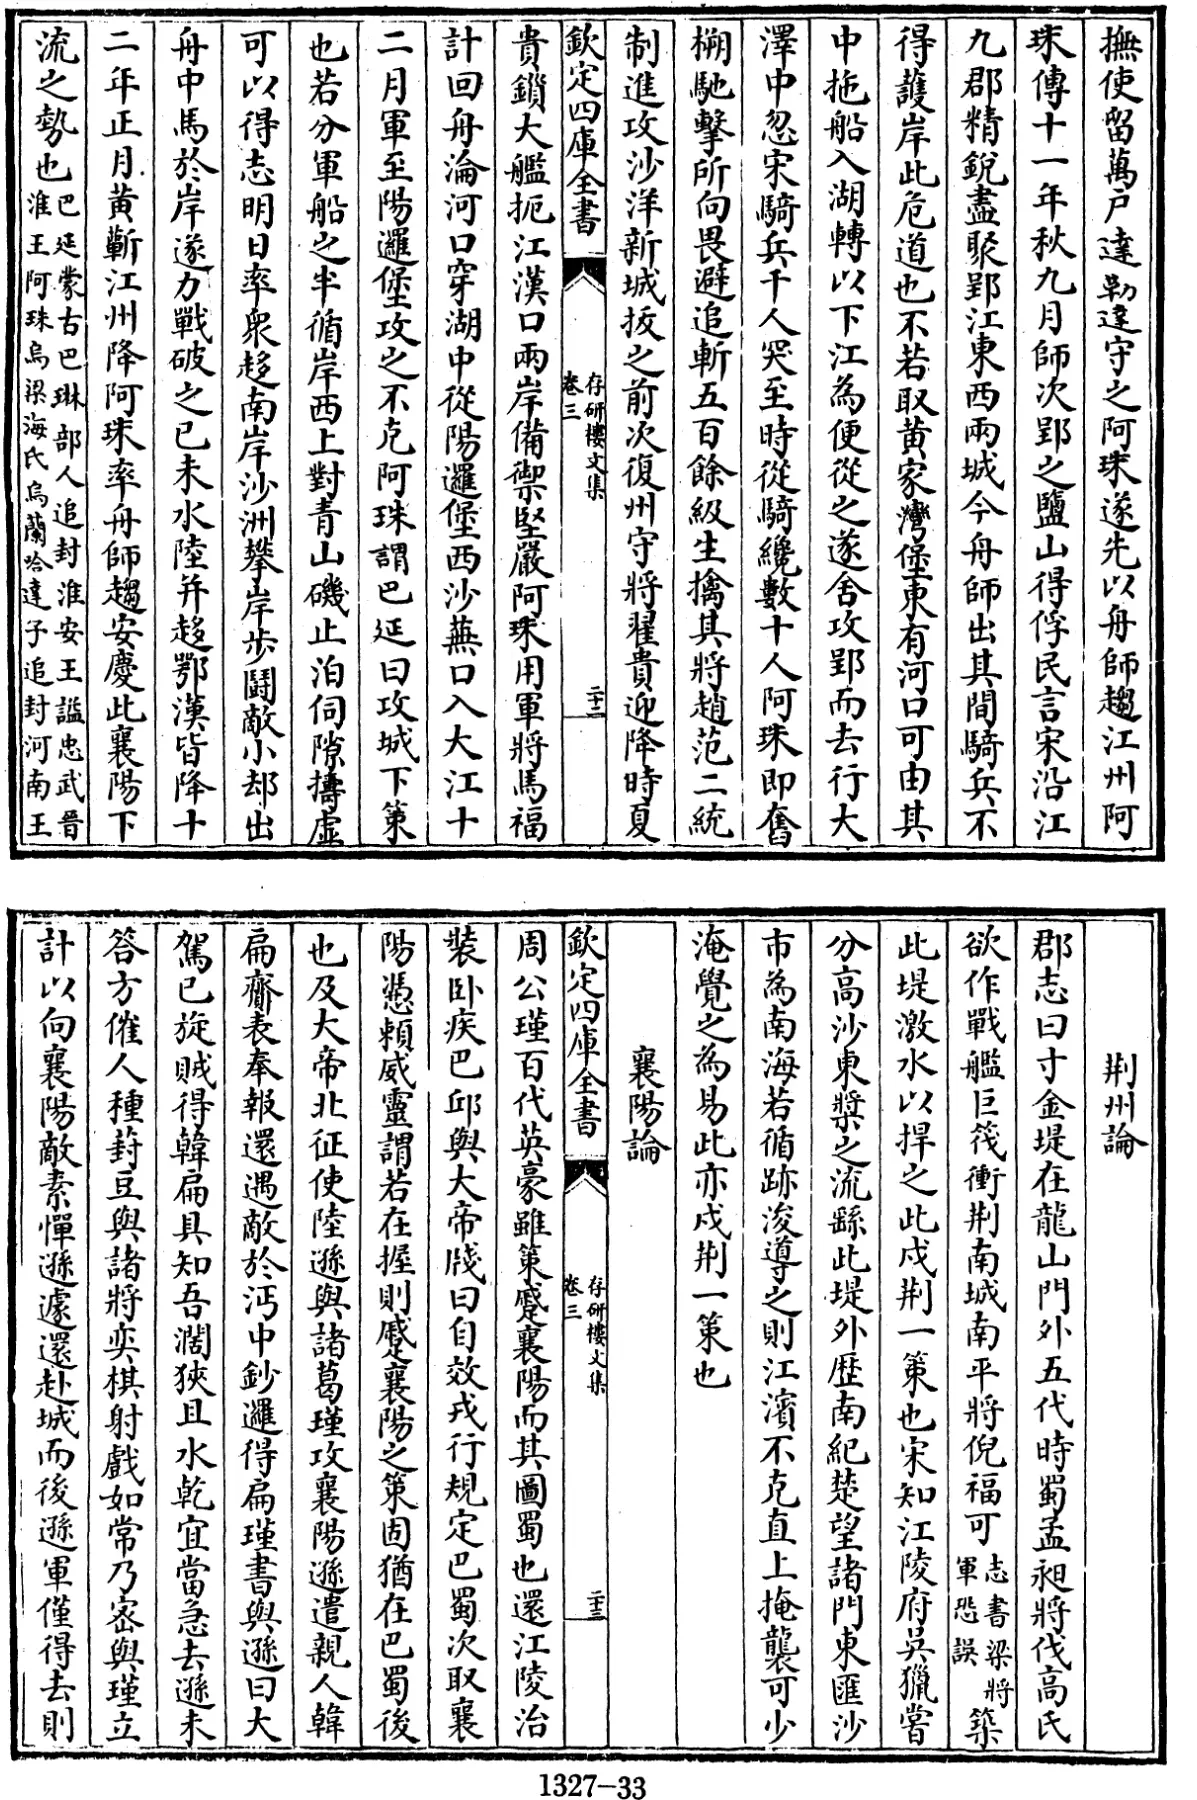 撫使留萬户達勒達守之阿珠遂先以舟師趨江州阿
珠傳十一年秋九月師次郢之鹽山得俘民言宋沿江
九郡精銳盡聚郢江東西兩城今舟師出其間騎兵不
得護岸此危道也不若取黄家灣堡東有河口可由其
中拖船入湖轉以下江為便從之遂舍攻郢而去行大
澤中忽宋騎兵千人突至時從騎纔數十人阿珠即奮
槊馳擊所向畏避追斬五百餘級生擒其將趙范二統
制進攻沙洋新城拔之前次復州守將翟貴迎降時夏
欽定四庫全書
存研樓文集
卷三
二十二
貴鎖大艦扼江漢口兩岸備禦堅嚴阿珠用軍將馬福
計回舟淪河口穿湖中從陽邏堡西沙蕪口入大江十
二月軍至陽邏堡攻之不克阿珠謂巴延曰攻城下策
也若分軍船之半循岸西上對青山磯止泊伺隙擣虚
可以得志明日率衆趍南岸沙洲攀岸步鬬敵小却出
舟中馬於岸遂力戰破之已未水陸并趍鄂漢皆降十
二年正月黄蘄江州降阿珠率舟師趨安慶此襄陽下
流之勢也
巴延蒙古巴琳部人追封淮安王諡忠武晉
淮王阿珠烏梁海氏烏蘭哈達子追封河南王
荆州論
郡志曰寸金堤在龍山門外五代時蜀孟昶將伐高氏
欲作戰艦巨筏衝荆南城南平將倪福可
志書梁將
軍恐誤
築
此堤激水以捍之此戍荆一策也宋知江陵府吳獵嘗
分高沙東奬之流繇此堤外歴南紀楚望諸門東匯沙
市為南海若循跡浚導之則江濱不克直上掩襲可少
淹覺之為易此亦戍荆一策也
襄陽論
欽定四庫全書
存研樓文集
卷三
二十三
周公瑾百代英豪雖策蹙襄陽而其圖蜀也還江陵治
裝卧疾巴邱與大帝牋曰自效戎行規定巴蜀次取襄
陽憑賴威靈謂若在握則蹙襄陽之策固猶在巴蜀後
也及大帝北征使陸遜與諸葛瑾攻襄陽遜遣親人韓
扁齎表奉報還遇敵於沔中鈔邏得扁瑾書與遜曰大
駕已旋賊得韓扁具知吾濶狹且水乾宜當急去遜未
答方催人種葑豆與諸將奕棋射戲如常乃宻與瑾立
計以向襄陽敵素憚遜遽還赴城而後遜軍僅得去則
1327-33